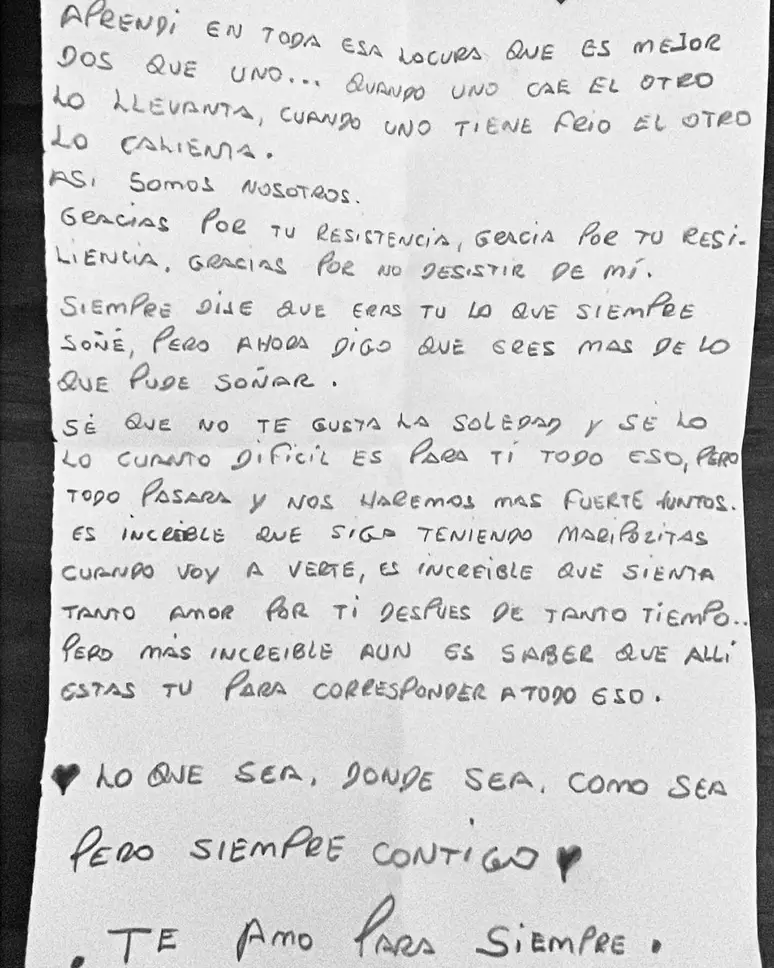 APRENDI EN TODA ESA LOCURA QUE ES MEJOR
DOS QUE UNO... QUANDO UNO CAE EL OTRO
LO LLEVANTA, CUANDO UNO TIENE FRIO EL OTRO
LO CALIENTA.
ASI SOMOS NOSOTROS.
GRACIAS POR TU RESISTENCIA, GRACIA POR TU RESI-
LIENCIA. GRACIAS POR NO DESISTIR DE MÍ.
SIEMPRE DIJE QUE ERAS TU LO QUE SIEMPRE
SOÑÉ, PERO AHORA DIGO QUE ERES MAS DE LO
QUE PUDE SOÑAR.
SÉ QUE NO TE GUSTA LA SOLEDAD Y SÉ LO
LO CUANTO DIFICÍL ES PARA TI TODO ESO, PERO
TODO PASARA Y NOS HAREMOS MAS FUERTE JUNTOS.
ES INCREÍBLE QUE SIGA TENIENDO MARIPOZITAS
CUANDO VOY A VERTE, ES INCREIBLE QUE SIENTA
TANTO AMOR POR TI DESPUES DE TANTO TIEMPO..
PERO MÁS INCREIBLE AUN ES SABER QUE ALLÍ
ESTAS TU PARA CORRESPONDER A TODO ESO.
♥ LO QUE SEA, DONDE SEA, COMO SEA
PERO SIEMPRE CONTIGO ♥
. TE AMO PARA SIEMPRE.